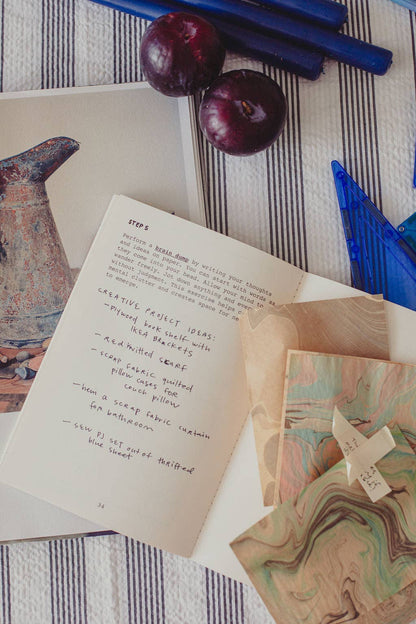 STEP 5
Perform a brain dump by writing your thoughts
and ideas on paper. You can start with words as
they come into your head. Allow your mind to
wander freely. Jot down anything and every
without judgment. This exercise helps
mental clutter and creates space for ne
to emerge.
CREATIVE PROJECT IDEAS:
- Plywood book shelf with
IKEA BRACKETS
- RED KNITTED SCARF
- SCRAP FABRIC QUILTED
PILLOW CASES FOR
COUCH PILLOW
- Hem A SCRAP FABRIC CURTAIN
FOR BATHROOM
- SEW PJ SET OUT OF THRIFTED
BLUE SHEET